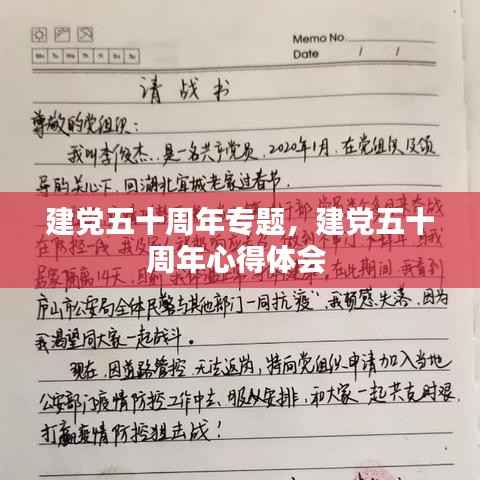 Memo No.
Date / /
请战书
尊敬的党组织：
我叫李俊杰，是一名共产党员，2020年1月，在党组织及领
导的关心下，回湖北宜城老家过春节。
建党五十周年专题，建党五十
周年心得体会
居家隔离14天，在此期间，我看到
庐山市公安局全体民警与其他部门一同抗疫，我顿感失落，因为
我渴望同大家一起战斗。
现在，因道路管控，无法返浔，特向党组织申请加入当地
公安部门疫情防控工作中去，服从安排，和大家一起共克时艰，
打赢疫情防控狙击战！